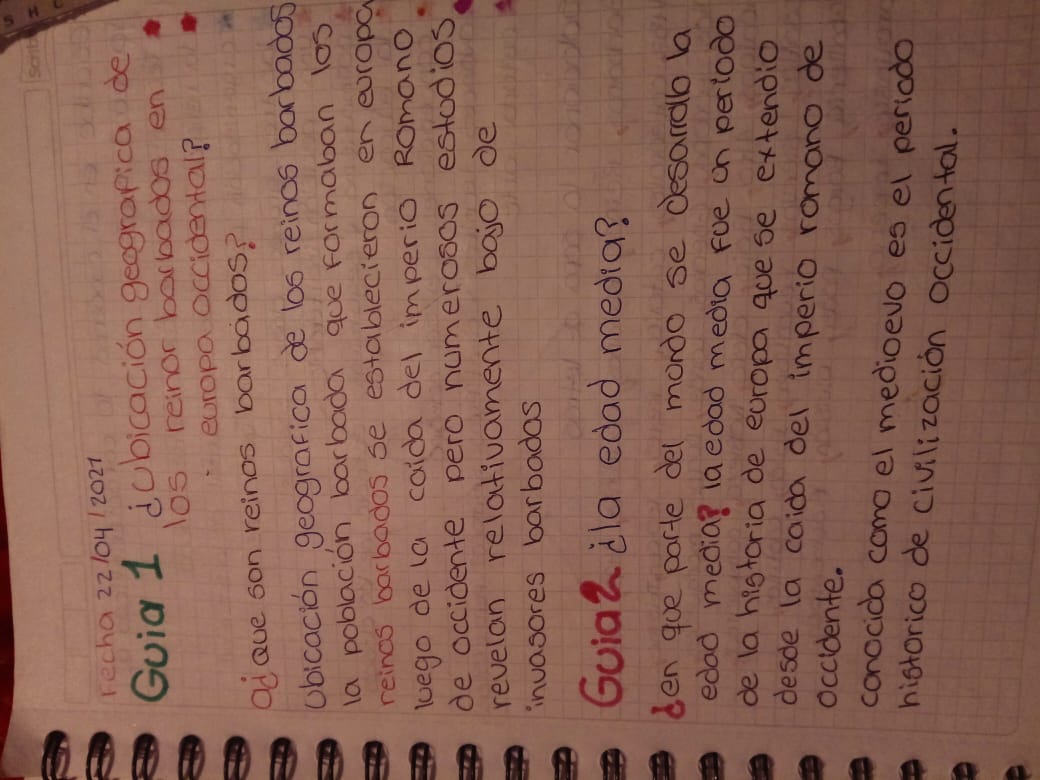 fecha 22/04/2021
Guia 1 ¿Ubicación geografica de
los reinor barbados en
europa occidental?
a¿que son reinos barbados?
Ubicación geografica de los reinos barbados
la población barbada que formaban los
reinos barbados se establecieron en europa
luego de la caida del imperio Romano
de occidente pero numerosos estudios
revelan relativamente bajo de
invasores barbados
Guia 2 ¿la edad media?
¿en que parte del mundo se desarrollo la
edad media? la edad media fue un periodo
de la historia de europa que se extendio
desde la caida del imperio romano de
occidente.
conocida como el medioevo es el periodo
historico de civilización occidental.